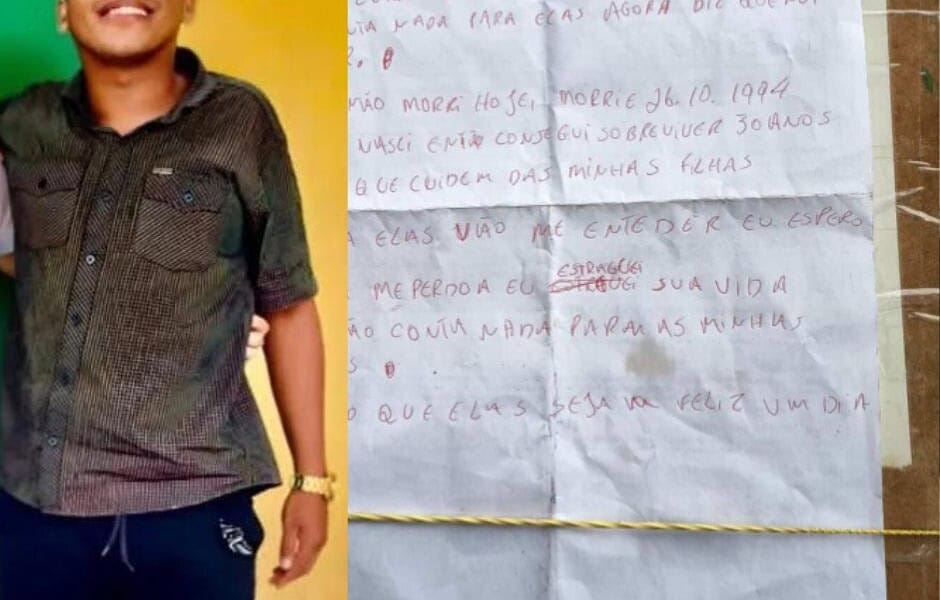 NADA PARA ELAS AGORA DIZ QUE
NÃO MORRI HOJE, MORRIE 26.10.1994
NASCI ENTÃO CONSEGUI SOBREVIVER 30 ANOS
QUE CUIDEM DAS MINHAS FILHAS
A ELAS VÃO ME ENTEDER EU ESPERO
ME PERDOA EU ESTRAGUEI SUA VIDA
ÃO CONTA NADA PARA AS MINHAS
S
O QUE ELAS SEJA FELIZ UM DIA